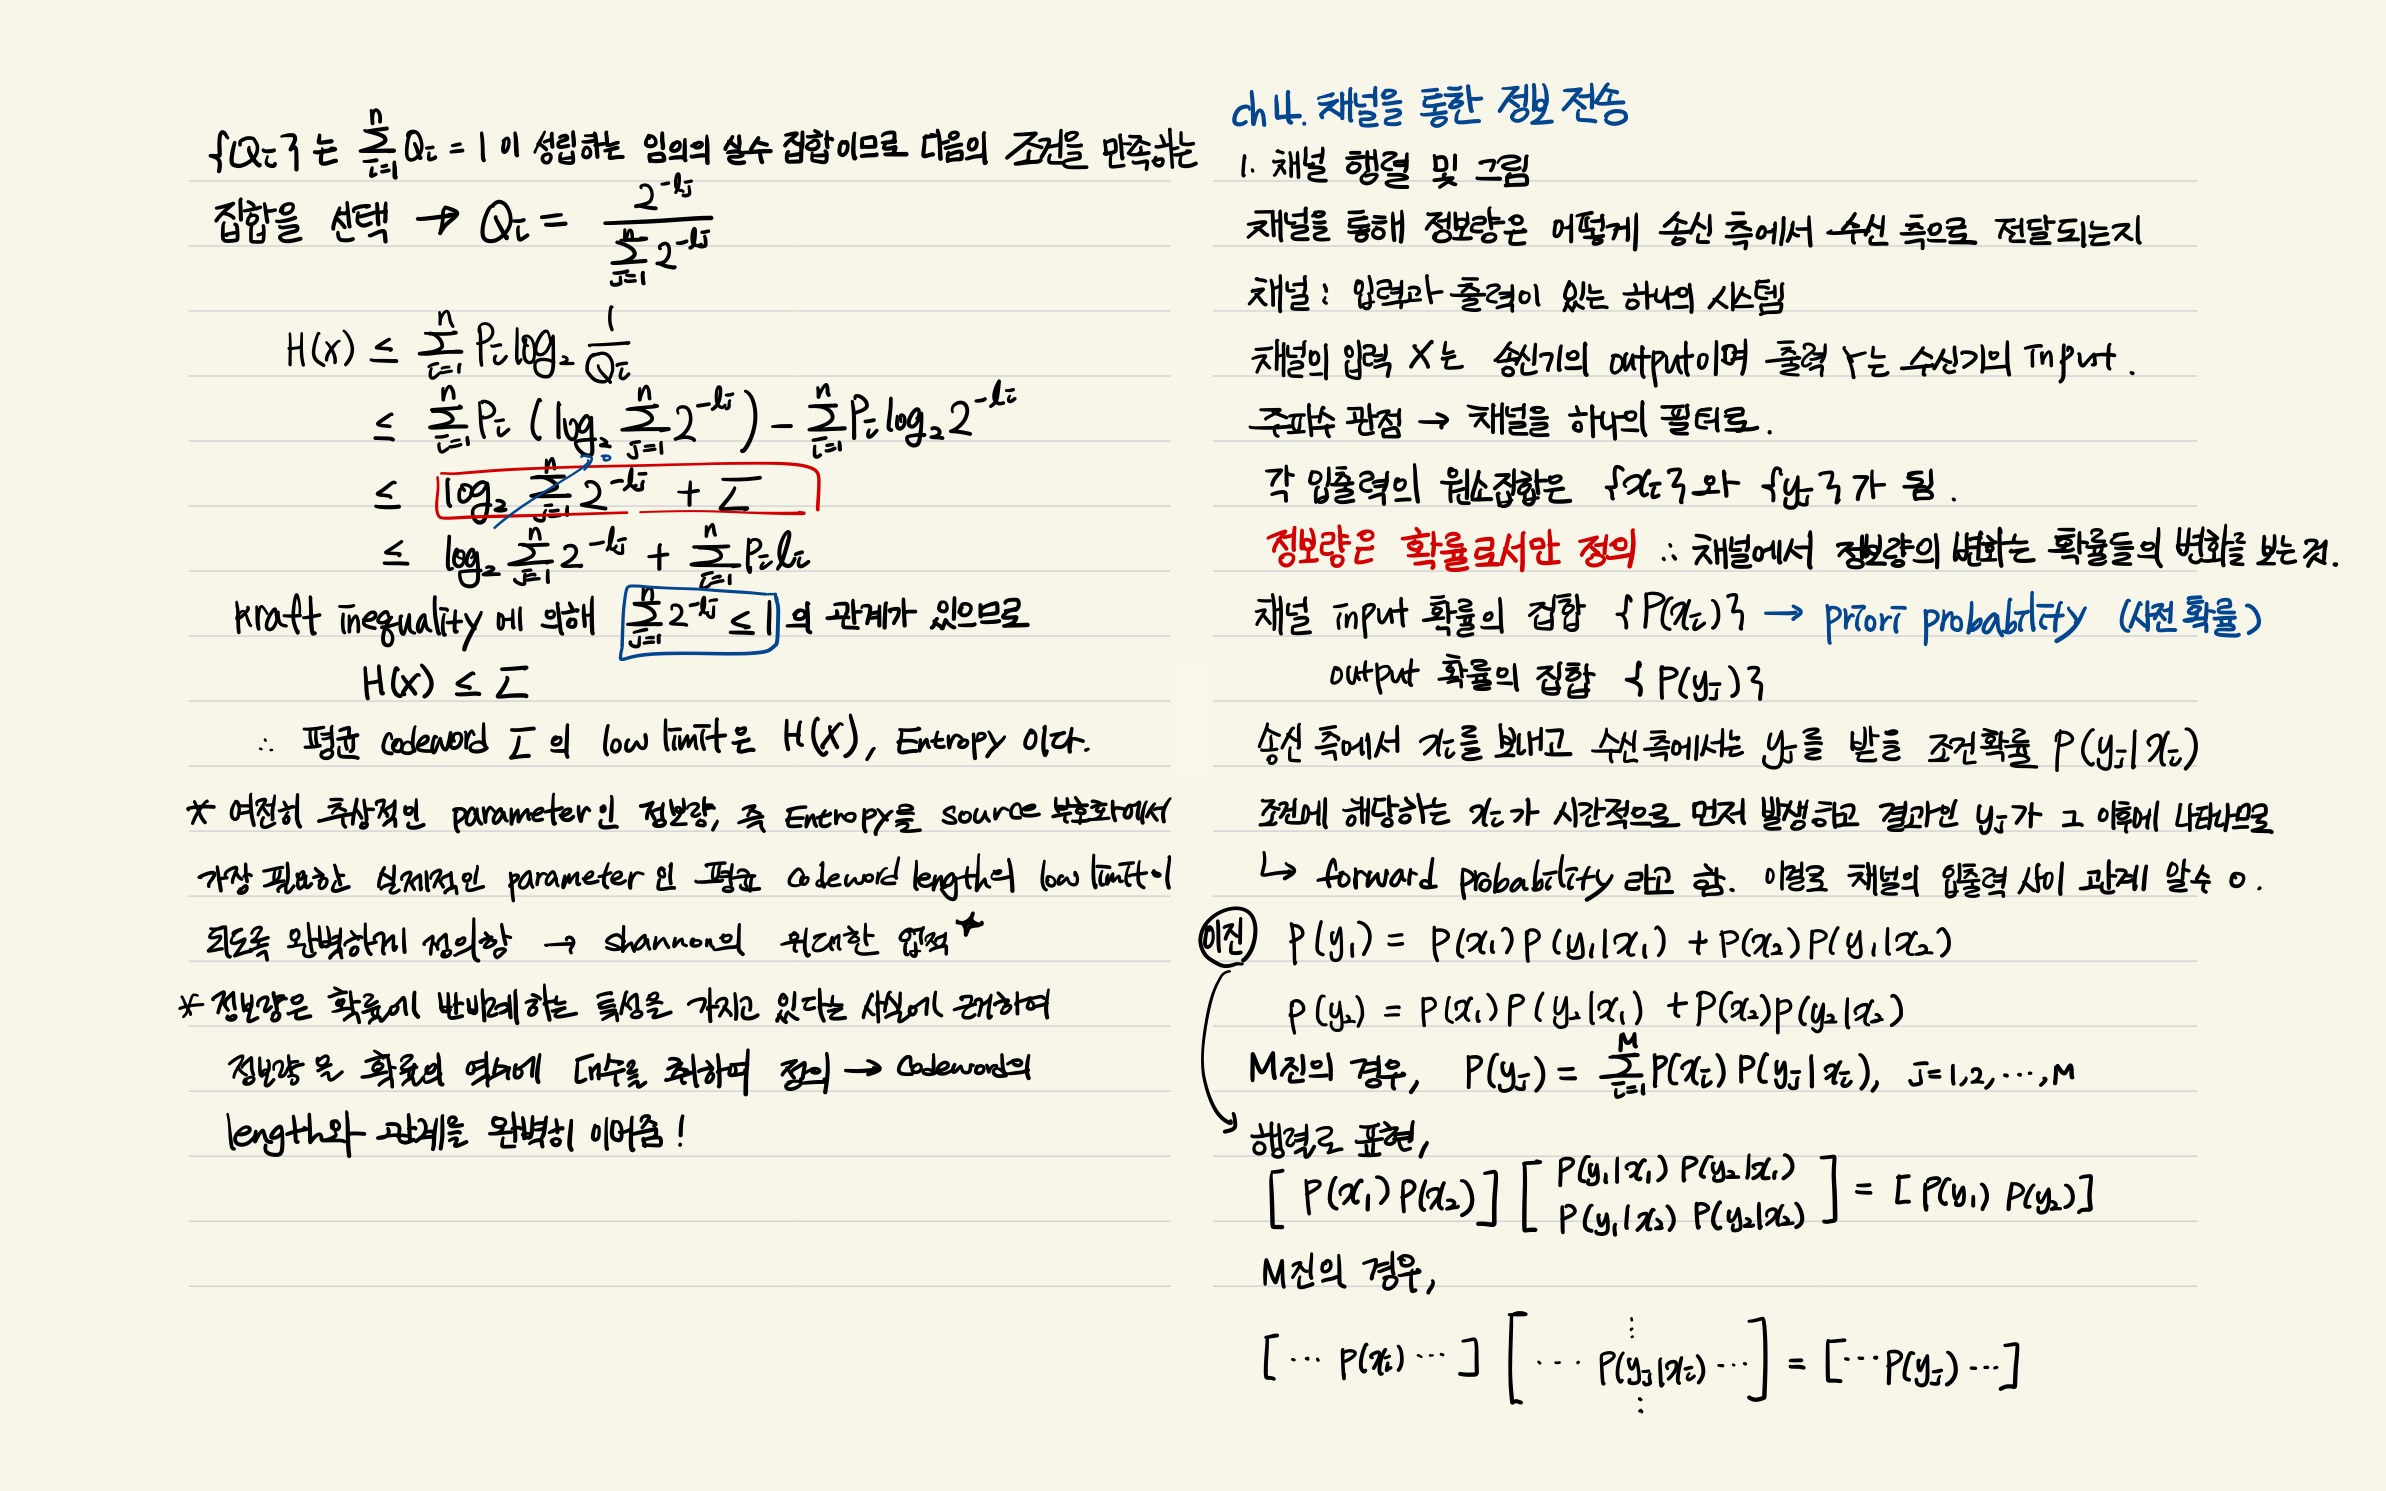 {Qi}는 n∑i=1 Qi = 1 이 성립하는 임의의 실수 집합이므로 다음의 조건을 만족하는
집합을 선택 → Qi = 2^-lj / n∑j=1 2^-lj
H(x) ≤ n∑i=1 Pi log2 1/Qi
≤ n∑i=1 Pi (log2 n∑j=1 2^-lj) - n∑i=1 Pi log2 2^-li
≤ log2 n∑j=1 2^-lj + L̅
≤ log2 n∑j=1 2^-lj + n∑i=1 Pi li
Kraft inequality에 의해 n∑j=1 2^-lj ≤ 1 의 관계가 있으므로
H(x) ≤ L̅
∴ 평균 codeword L̅의 low limit은 H(X), Entropy 이다.
* 여전히 추상적인 parameter인 정보량, 즉 Entropy를 source 부호화에서
가장 필요한 실제적인 parameter인 평균 codeword length의 low limit이
되도록 완벽하게 정의함 → shannon의 위대한 업적★
* 정보량은 확률에 반비례하는 특성을 가지고 있다는 사실에 근거하여
정보량을 확률의 역수에 대수를 취하며 정의 → codeword의
length와 관계를 완벽히 이어줌!
ch4. 채널을 통한 정보 전송
1. 채널 행렬 및 그림
채널을 통해 정보량은 어떻게 송신 측에서 수신 측으로 전달되는지
채널: 입력과 출력이 있는 하나의 시스템
채널의 입력 X는 송신기의 output이며 출력 Y는 수신기의 input.
주파수 관점 → 채널을 하나의 필터로.
각 입출력의 원소집합은 {xi}와 {yj}가 됨.
정보량은 확률로서만 정의 ∴ 채널에서 정보량의 변화는 확률들의 변화를 보는 것.
채널 input 확률의 집합 {P(xi)} → priori probability (사전 확률)
output 확률의 집합 {P(yj)}
송신 측에서 xi를 보내고 수신 측에서는 yj를 받을 조건확률 P(yj|xi)
조건에 해당하는 xi가 시간적으로 먼저 발생하고 결과인 yj가 그 이후에 나타나므로
↳ forward probability 라고 함. 이걸로 채널의 입출력 사이 관계 알수 o.
이진 P(y1) = P(x1)P(y1|x1) + P(x2)P(y1|x2)
P(y2) = P(x1)P(y2|x1) + P(x2)P(y2|x2)
M진의 경우, P(yj) = M∑i=1 P(xi)P(yj|xi), j=1,2,⋯,M
행렬로 표현,
[P(x1) P(x2)] [P(y1|x1) P(y2|x1) P(y1|x2) P(y2|x2)] = [P(y1) P(y2)]
M진의 경우,
[⋯ P(xi) ⋯] [⋮ ⋯ P(yj|xi) ⋯ ⋮] = [⋯ P(yj) ⋯]